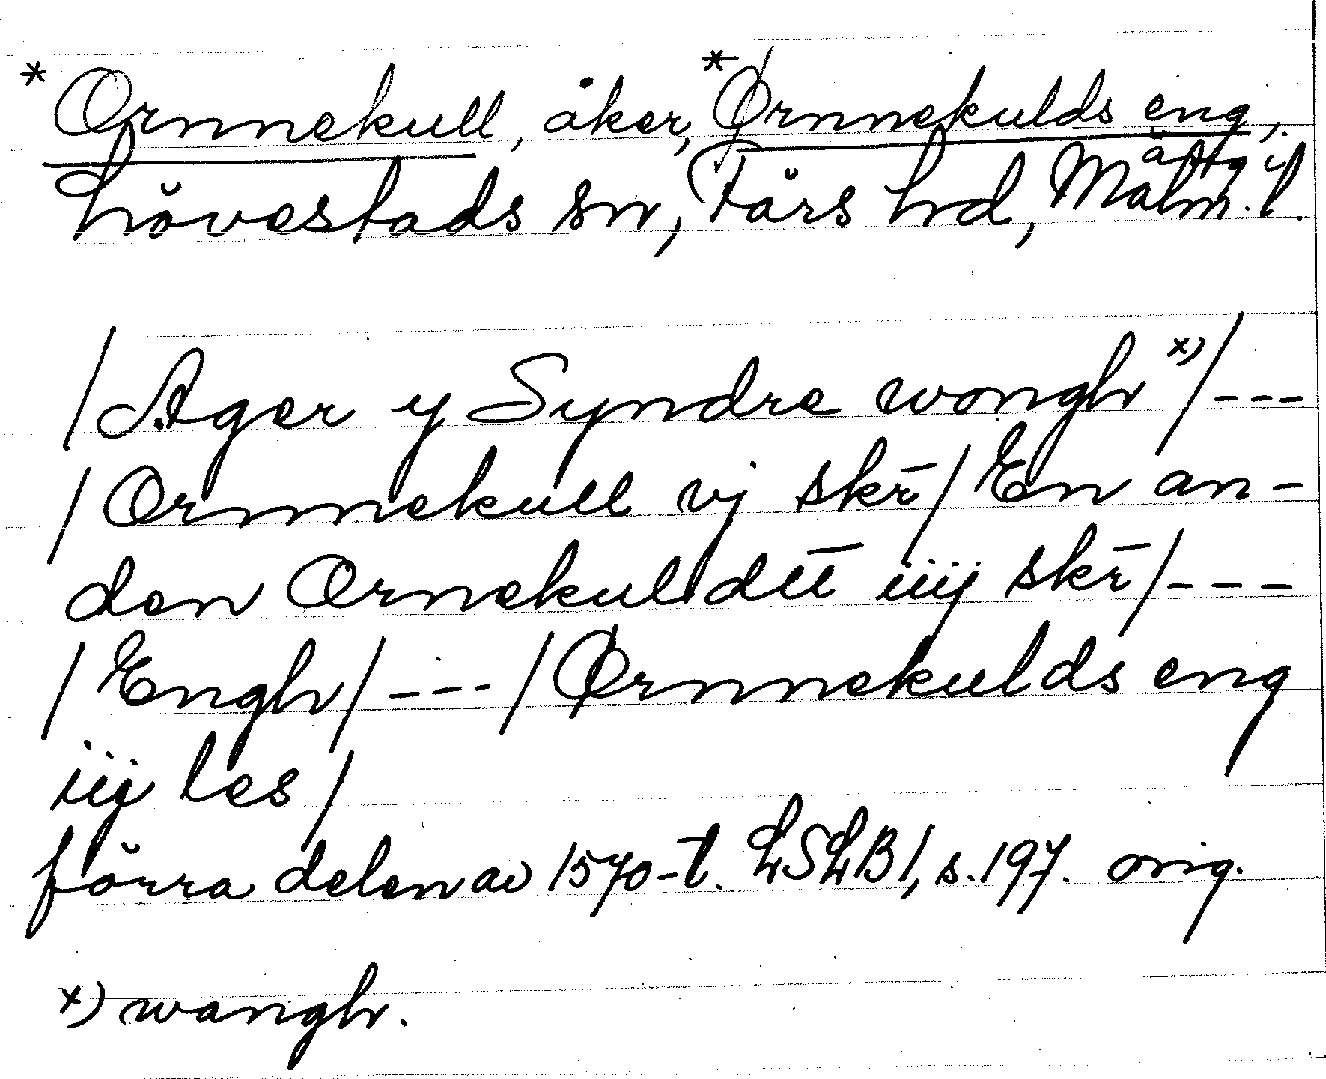 *Ornnekull, åker, *Ørnnekulds eng,
äng i
Lövestads sn, Färs hd, Malm. l.
/Ager y Syndre wongh x)/---
/Ornnekull vj skē/En an-
den Ornekul dēē iiij skē/---
/Engh/---/Ørnnekulds eng
iij les/
förra delen av 1570-t. LSLB 1, s. 197. orig.
x) wangh.